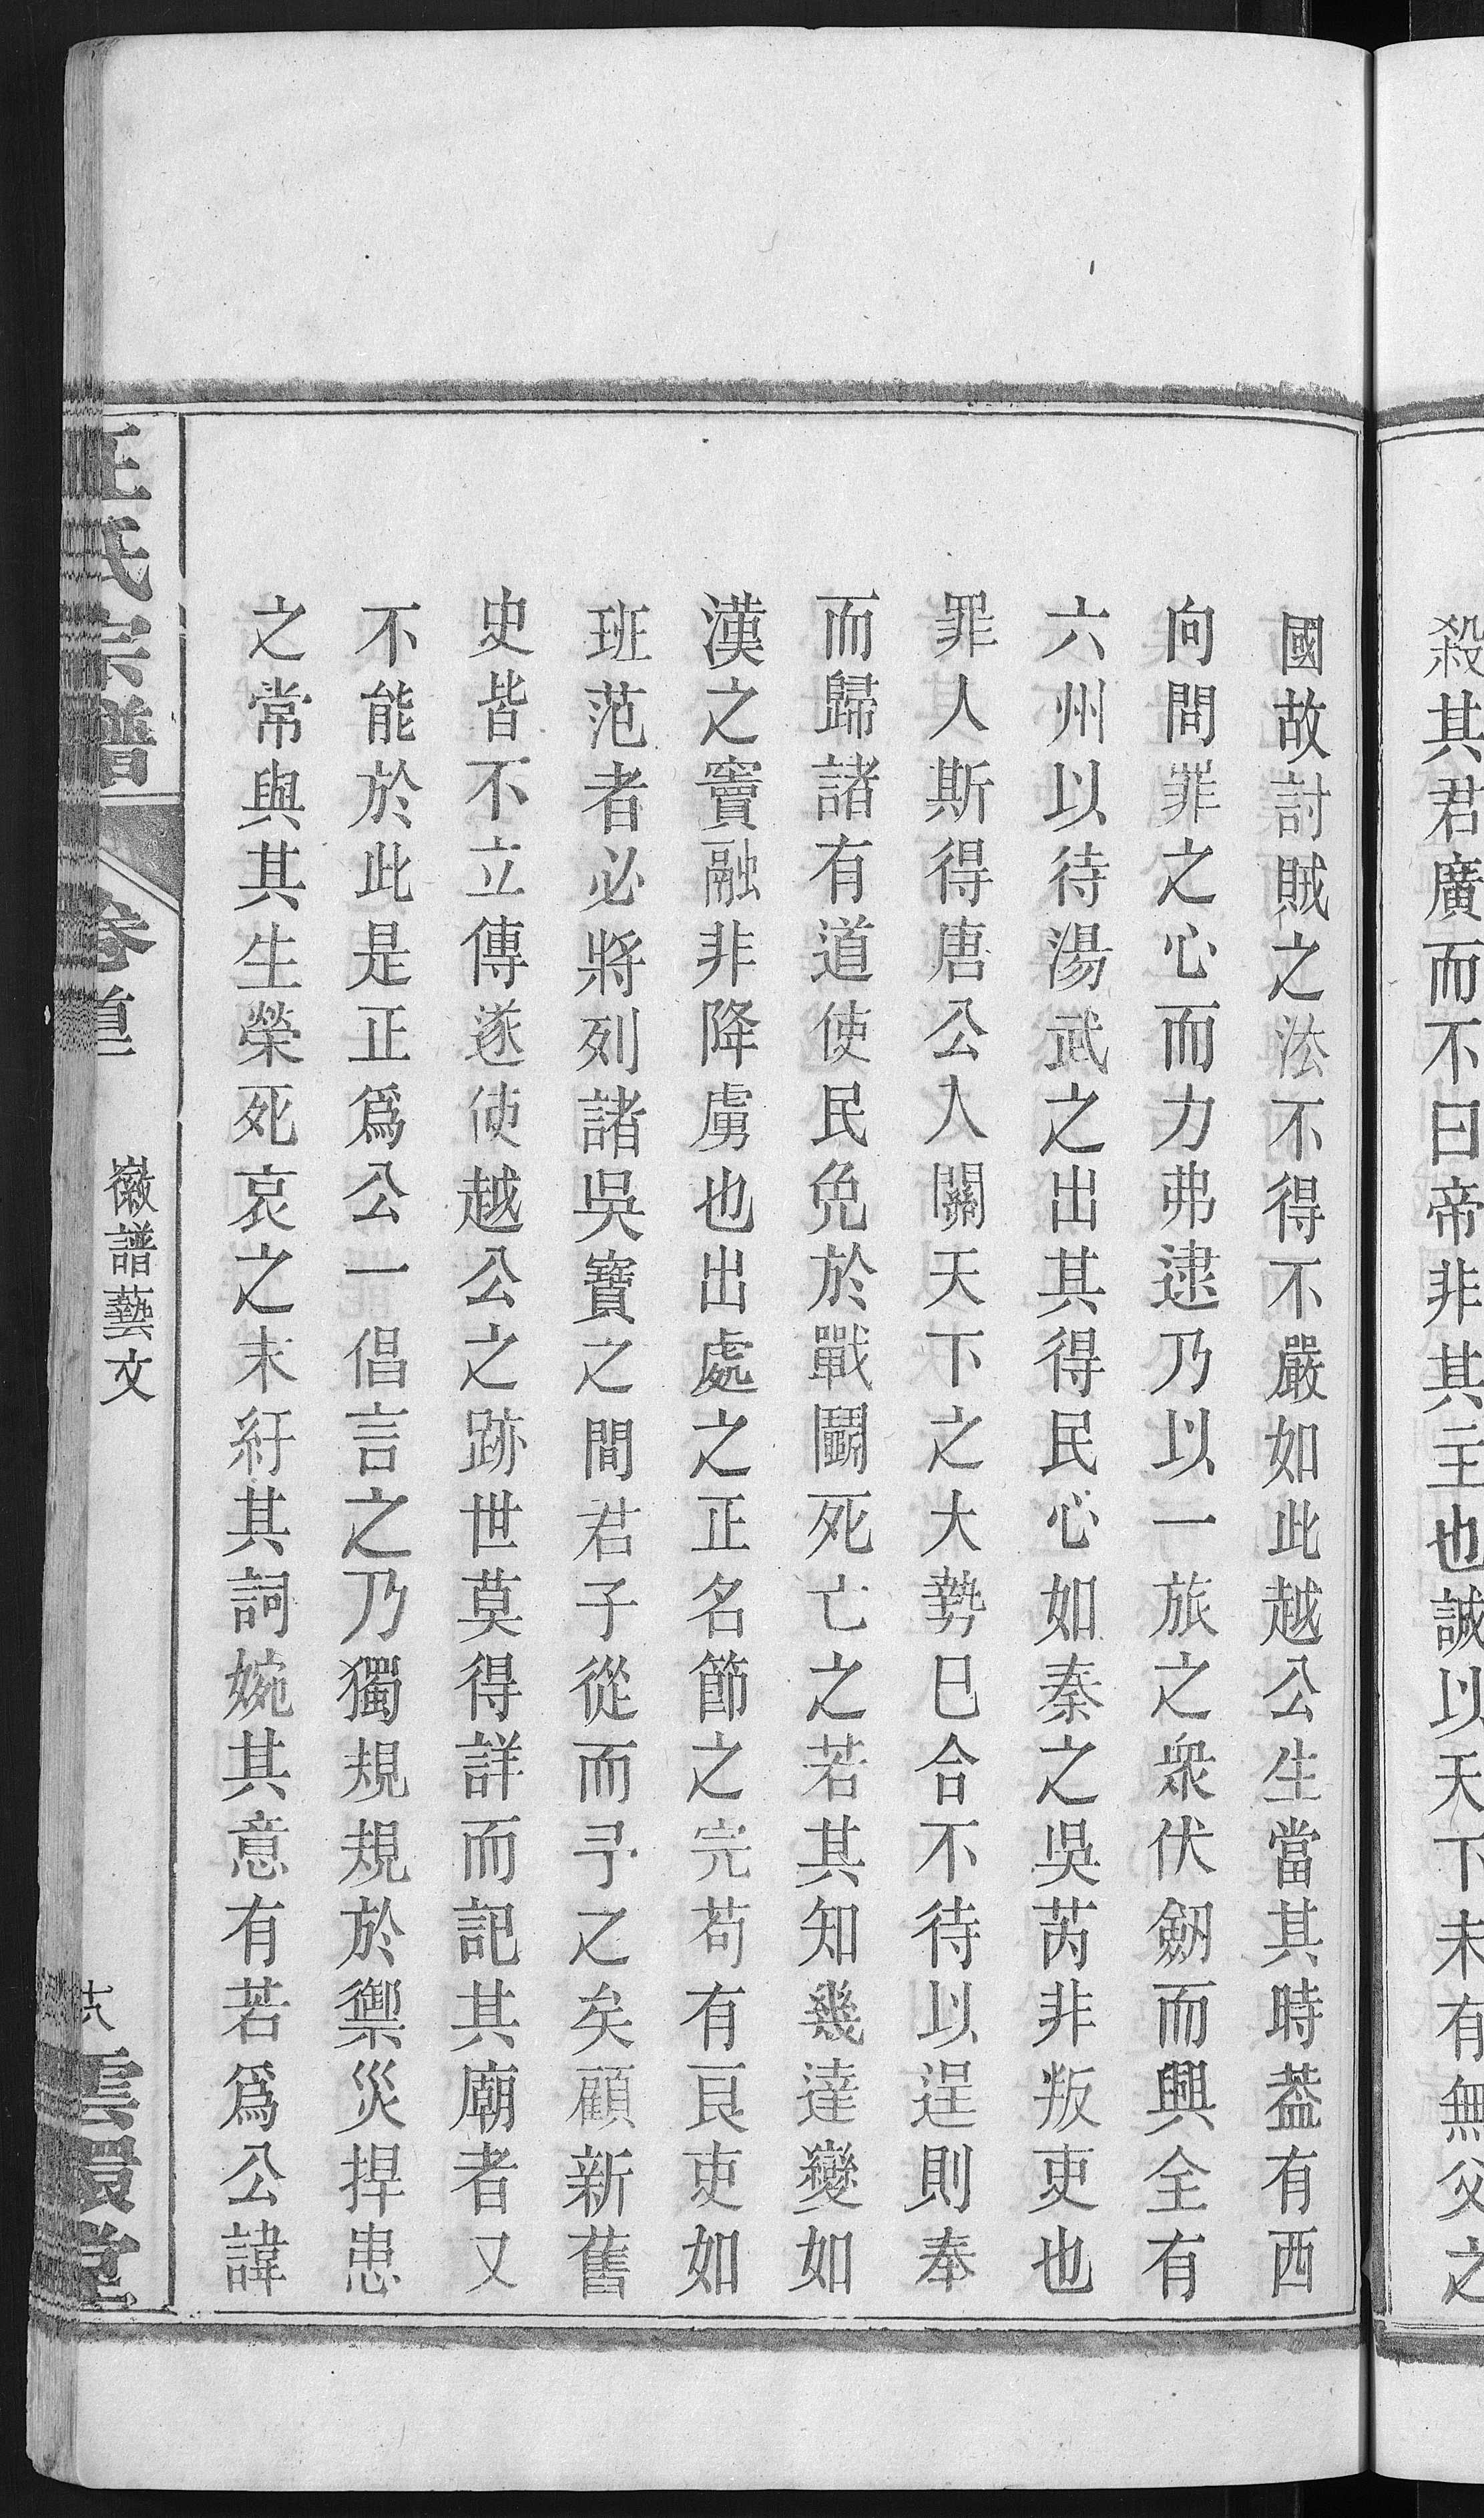 殺其君廣而不曰帝非其主也誠以天下未有無父之
國故討賊之法不得不嚴如此越公生當其時葢有西
向問罪之心而力弗逮乃以一旅之衆伏劒而興全有
六州以待湯武之出其得民心如秦之吳芮非叛吏也
罪人斯得唐公入關天下之大勢已合不待以逞則奉
而歸諸有道使民免於戰鬬死亡之若其知幾達變如
漢之竇融非降虜也出處之正名節之完苟有良吏如
班范者必將列諸吳寶之間君子從而予之矣顧新舊
史皆不立傳遂使越公之跡世莫得詳而記其廟者又
不能於此是正爲公一倡言之乃獨規規於禦災捍患
之常與其生榮死哀之末紆其詞婉其意有若爲公諱
汪氏宗譜
卷首
徽譜藝文
雲環堂